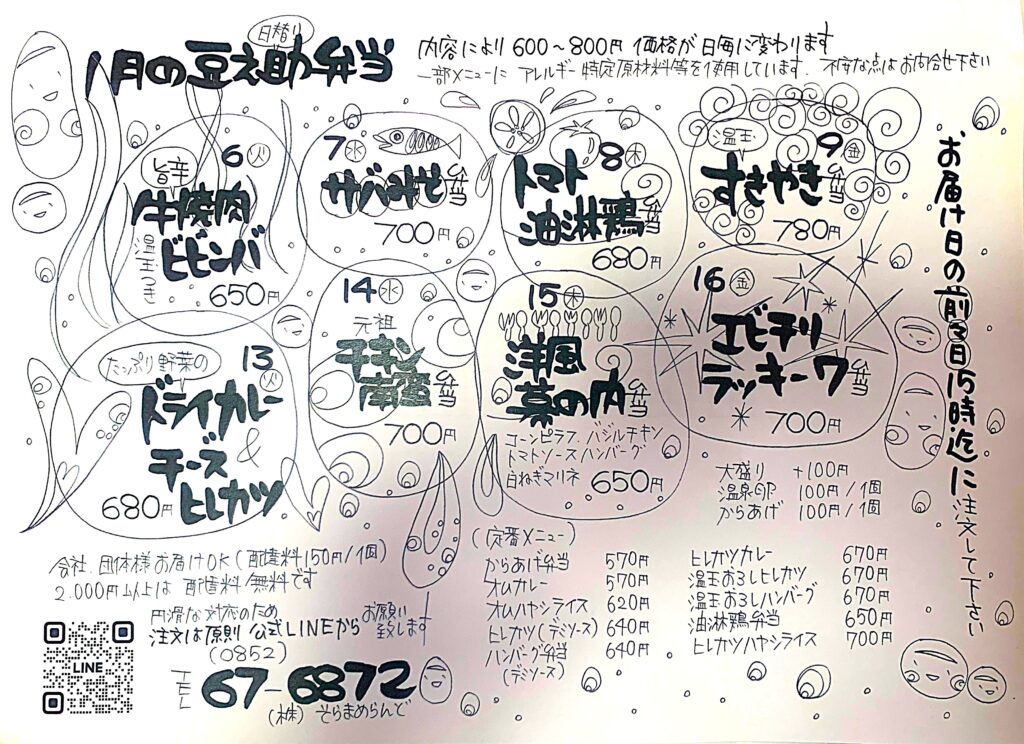 日替り
1月の豆之助弁当
内容により600〜800円 価格が日毎に変わります
一部メニューに アレルギー特定原材料等を使用しています. 不安な点はお問合せ下さい
6 火
旨辛
牛焼肉
ビビンバ
温玉つき
650円
7 水
サバみそ
弁当
700円
8 木
トマト
油淋鶏
弁当
680円
9 金
温玉
すきやき
弁当
780円
たっぷり野菜の
13 火
ドライカレー
&
チーズ
ヒレカツ
680円
14 水
元祖
チキン
南蛮
弁当
700円
15 木
洋風
幕の内
弁当
コーンピラフ. バジルチキン
トマトソースハンバーグ
白ねぎマリネ
650円
16 金
エビチリ
ラッキーワ
弁当
700円
お届け日の前々日15時迄に注文して下さい
大盛り +100円
温泉卵 100円/1個
からあげ 100円/1個
会社. 団体様お届けOK(配達料150円/1個)
2.000円以上は 配達料 無料です
円滑な対応のため
注文は原則 公式LINEから お願い致します
(定番メニュー)
からあげ弁当 570円
オムカレー 570円
オムハヤシライス 620円
ヒレカツ(デミソース) 640円
ハンバーグ弁当 640円
(デミソース)
ヒレカツカレー 670円
温玉おろしヒレカツ 670円
温玉おろしハンバーグ 670円
油淋鶏弁当 650円
ヒレカツハヤシライス 700円
LINE
(0852)
TEL 67-6872
(株)そらまめらんど